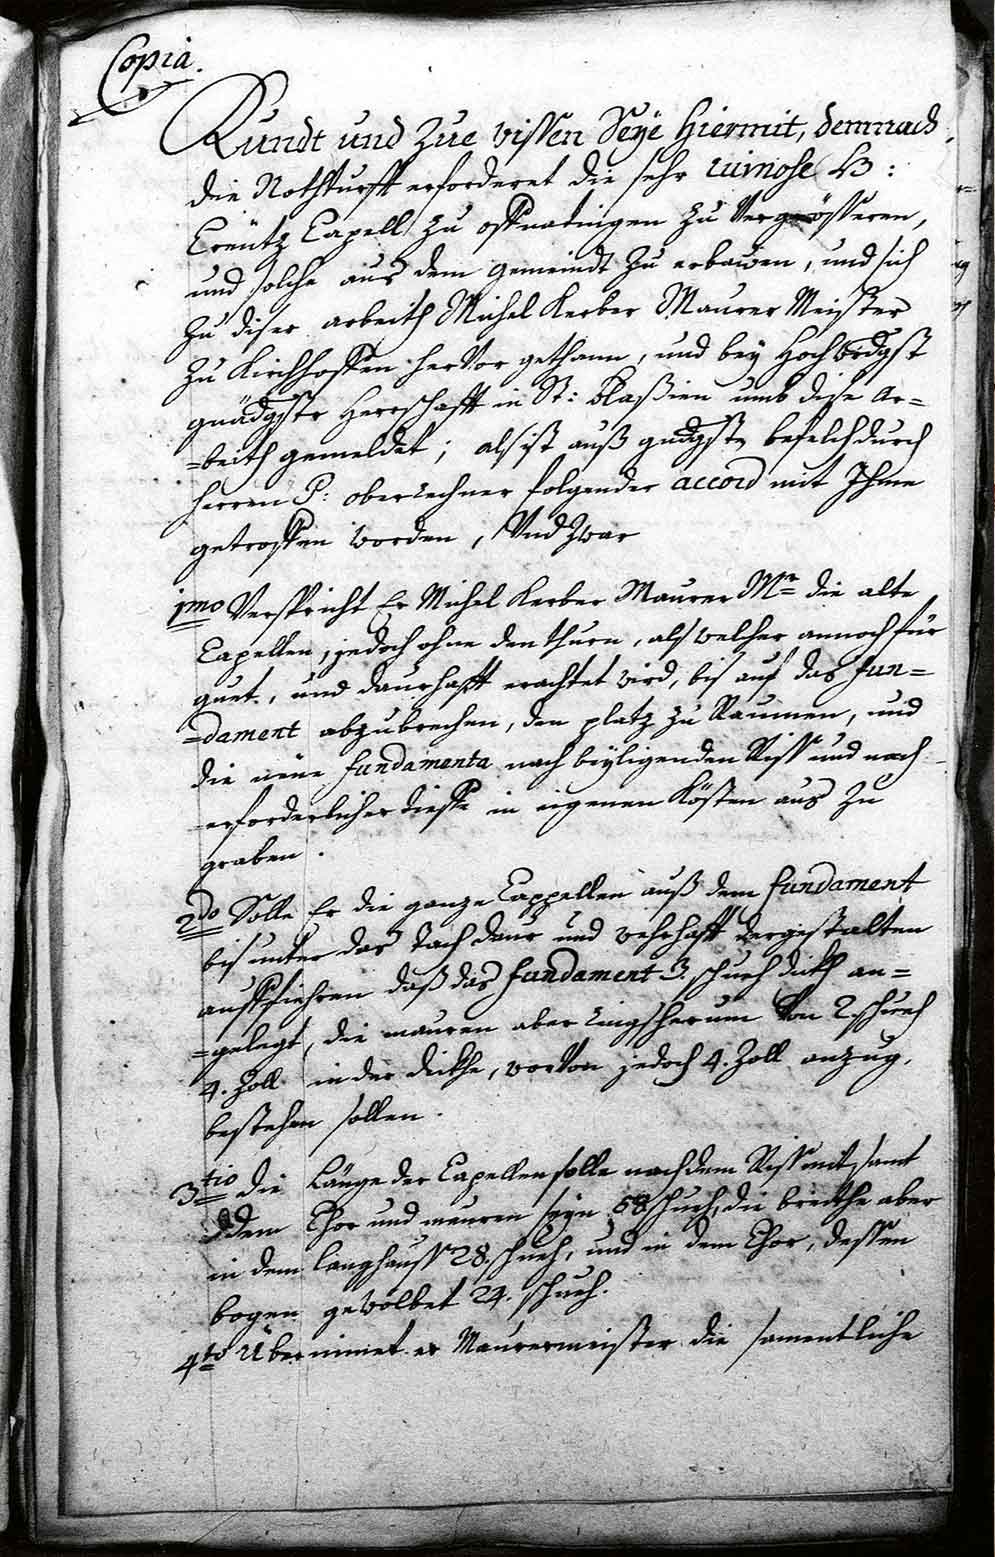 Copia.
Kundt und Zue wissen Seÿe hiermit, demnach
die Nothdurfft erforderet die sehr ruinose H:
Creütz Capell zu offnadingen zu Vergrösseren,
und solche aus dem gemeindt zu erbawen, und sich
zu diser arbeith Michel Kerber Maurer Meister
zu Kirchhoffen herVor gethann, und bey Hochwrdgst
gnädgster Herrschafft in St: Blasien umb dise Ar=
=beith gemeldet; als ist auß gndgstn befelch durch
herren P: oberrechner folgender accord mit Ihme
getroffen worden, Und Zwar
1mo Verspricht Er Michel Kerber Maurer Mr die alte
Capellen, jedoch ohne den thurn, als welcher annoch für
guet, und daurhafft erachtet wird, bis auf das fun=
=dament abzubrechen, den platz zu Raumen, und
die neue fundamenta nach beyligenden Riss und nach
erforderlicher tieffe in eigenen Kösten aus zu
graben.
2do Solle Er die ganze Cappellen auß dem fundament
bis unter das Tach daur und wehrhafft dergestalten
auffiehren daß das fundament 3. schueh dickh an=
=gelegt, die mauren aber ringsherum Von 2 schueh
4. Zoll in der dickhe, worVon jedoch 4. Zoll anzug,
bestehen sollen.
3tio die Länge der Capellen solle nach dem Riss mit samt
dem Chor und mauren seyn 68 schueh, die breithe aber
in dem langhauss 28. schueh, und in dem Chor, dessen
bogen gewölbet 24. schueh.
4to Übernimet er Maurermeister die samentliche